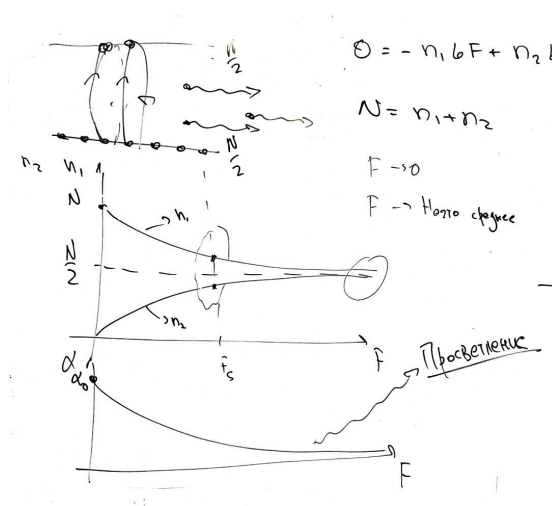 N/2
0 = - n₁ б F + n₂
N = n₁ + n₂
N/2
F → 0
F → Нечто среднее
n₂ n₁
N
n₁
N/2
n₂
F_s
F
Просветление
α
α₀
F